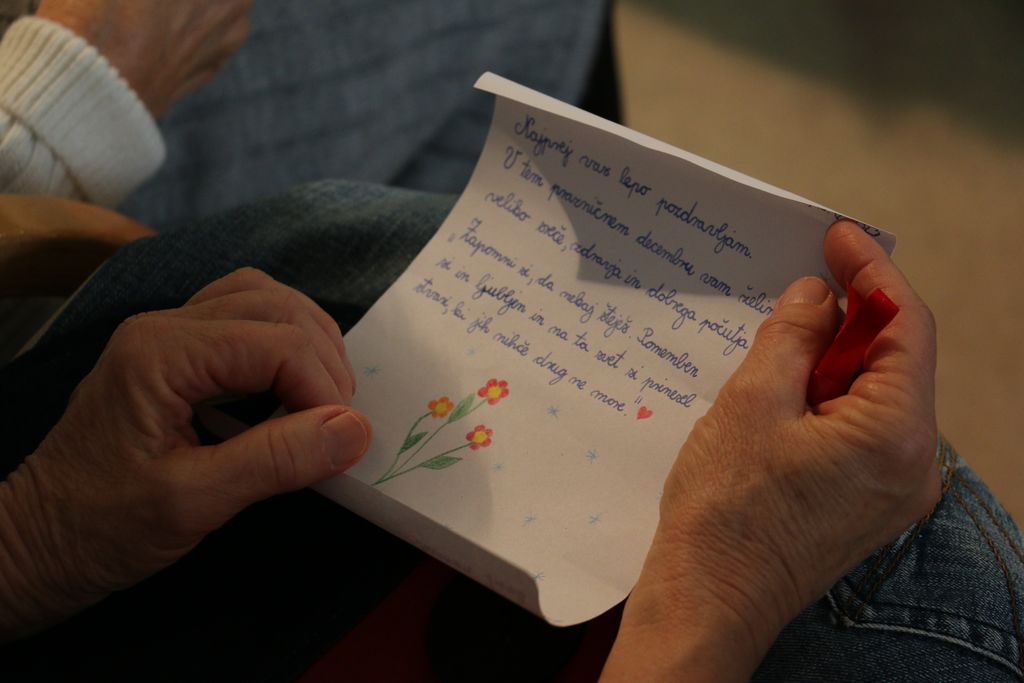 Najprej vas lepo pozdravljam.
V tem prazničnem decembru vam želim
veliko sreče, zdravja in dobrega počutja.
"Zapomni si, da nekaj šteješ. Pomemben
si in ljubljen in na ta svet si prinesel
stvari, ki jih nihče drug ne more."